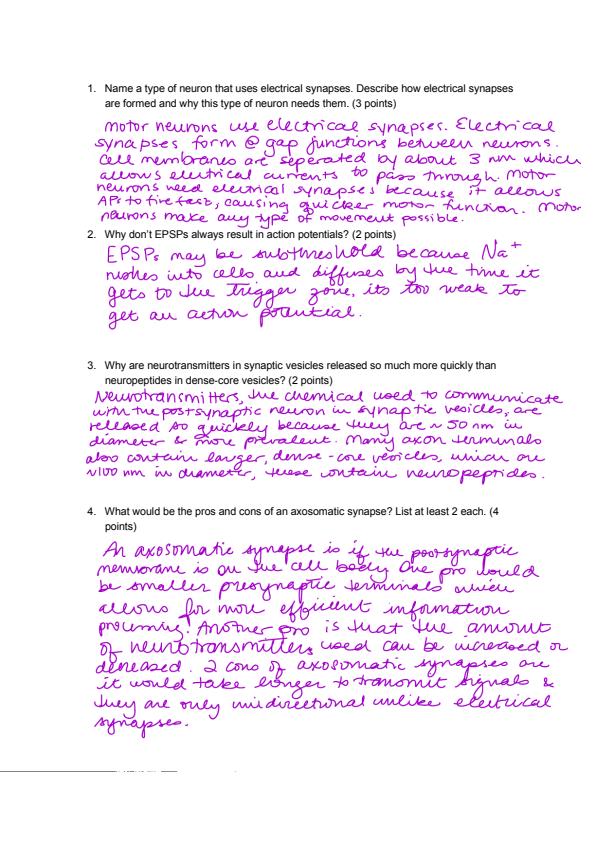 1. Name a type of neuron that uses electrical synapses. Describe how electrical synapses
are formed and why this type of neuron needs them. (3 points)
Motor neurons use electrical synapses. Electrical
synapses form @ gap junctions between neurons.
Cell membranes are seperated by about 3 nm which
allows electrical currents to pass through. Motor
neurons need electrical synapses because it allows
APs to fire fast, causing quicker motor function. Motor
neurons make any type of movement possible.
2. Why don't EPSPs always result in action potentials? (2 points)
EPSPs may be subthreshold because Na+
rushes into cells and diffuses by the time it
gets to the trigger zone, its too weak to
get an action potential.
3. Why are neurotransmitters in synaptic vesicles released so much more quickly than
neuropeptides in dense-core vesicles? (2 points)
Neurotransmitters, the chemical used to communicate
with the postsynaptic neuron in synaptic vesicles, are
released so quickly because they are ~50 nm in
diameter & more prevalent. Many axon terminals
also contain larger, dense-core vesicles, which are
~100 nm in diameter, these contain neuropeptides.
4. What would be the pros and cons of an axosomatic synapse? List at least 2 each. (4
points)
An axosomatic synapse is if the postsynaptic
membrane is on the cell body. One pro would
be smaller presynaptic terminals which
allows for more efficient information
processing. Another pro is that the amount
of neurotransmitters used can be increased or
decreased. 2 cons of axosomatic synapses are
it would take longer to transmit signals &
they are only unidirectional unlike electrical
synapses.